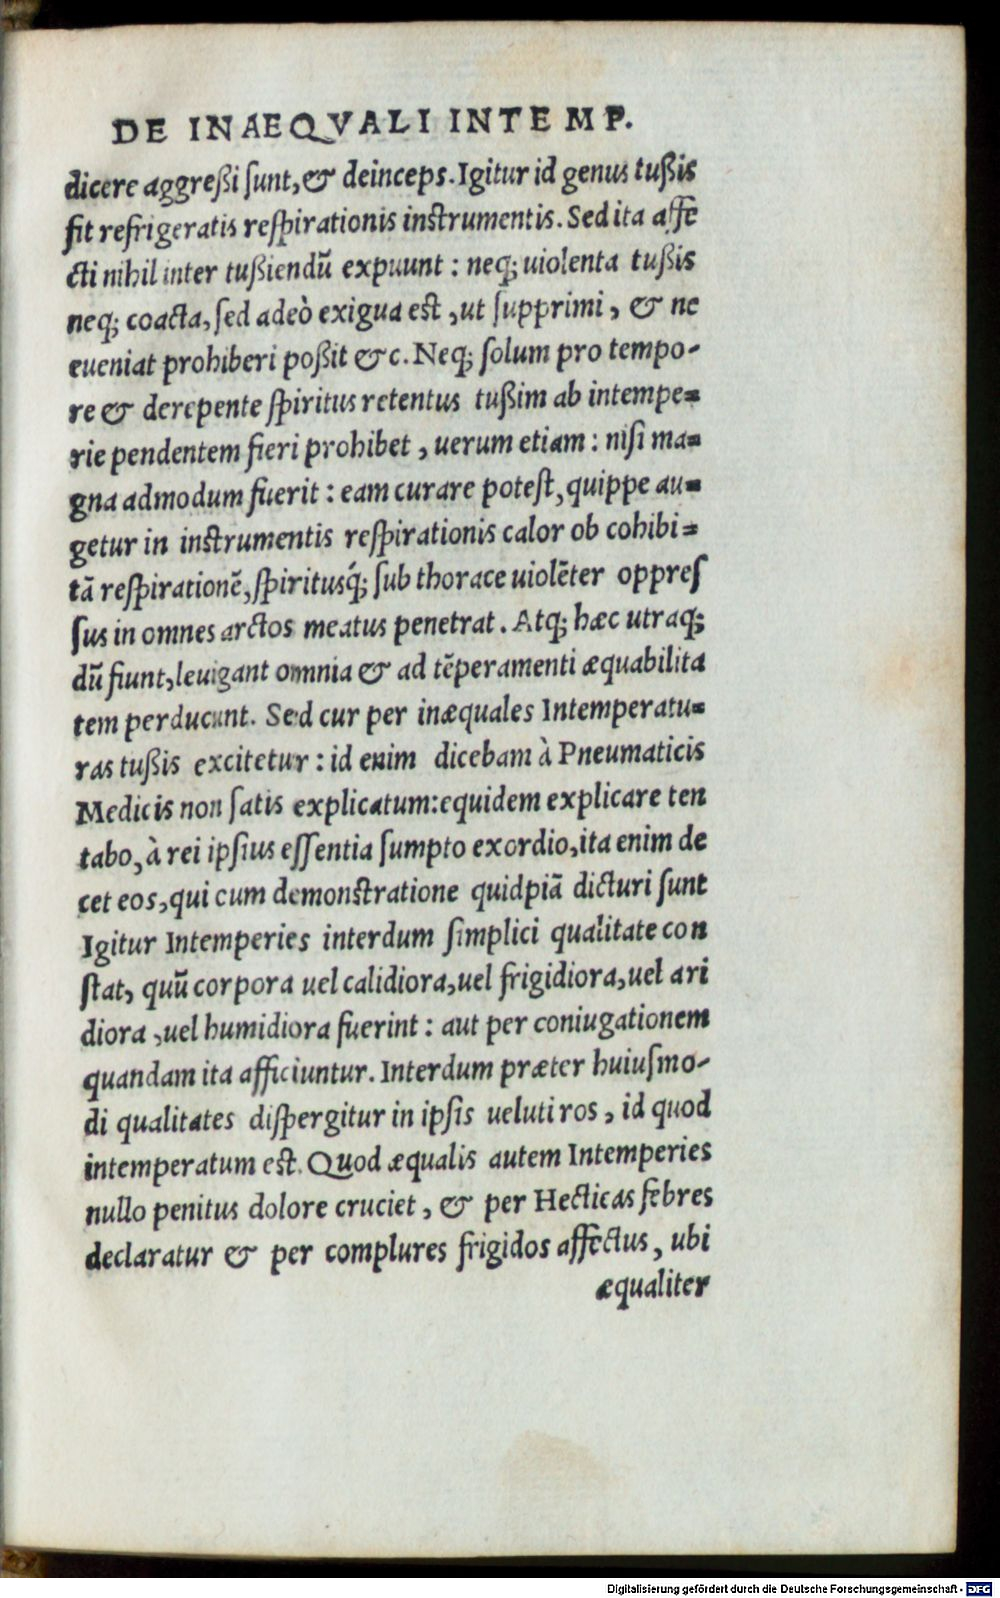 DE INAEQVALI INTEMP.
dicere aggreßi ſunt,& deinceps. Igitur id genus tußis
fit refrigeratis reſpirationis inſtrumentis. Sed ita affe
cti nihil inter tußiendū expuunt : neq; uiolenta tußis
neq; coacta, ſed adeò exigua eſt ,ut ſupprimi , & ne
eueniat prohiberi poßit &c. Neq; ſolum pro tempo-
re & derepente ſpiritus retentus tußim ab intempe=
rie pendentem fieri prohibet , uerum etiam : niſi ma=
gna admodum fuerit : eam curare poteſt, quippe au=
getur in inſtrumentis reſpirationis calor ob cohibi=
tā reſpirationē, ſpiritusq́; ſub thorace uiolēter oppreſ
ſus in omnes arctos meatus penetrat. Atq; hæc utraq;
dū fiunt, leuigant omnia & ad tēperamenti æquabilita
tem perducunt. Sed cur per inæquales Intemperatu=
ras tußis excitetur : id enim dicebam à Pneumaticis
Medicis non ſatis explicatum: equidem explicare ten
tabo, à rei ipſius eſſentia ſumpto exordio, ita enim de
cet eos, qui cum demonſtratione quidpiā dicturi ſunt
Igitur Intemperies interdum ſimplici qualitate con
ſtat, quū corpora uel calidiora, uel frigidiora, uel ari
diora , uel humidiora fuerint : aut per coniugationem
quandam ita afficiuntur. Interdum præter huiuſmo-
di qualitates diſpergitur in ipſis ueluti ros , id quod
intemperatum eſt. Quod æqualis autem Intemperies
nullo penitus dolore cruciet , & per Hecticas febres
declaratur & per complures frigidos affectus, ubi
æqualiter
Digitalisierung gefördert durch die Deutsche Forschungsgemeinschaft - DFG